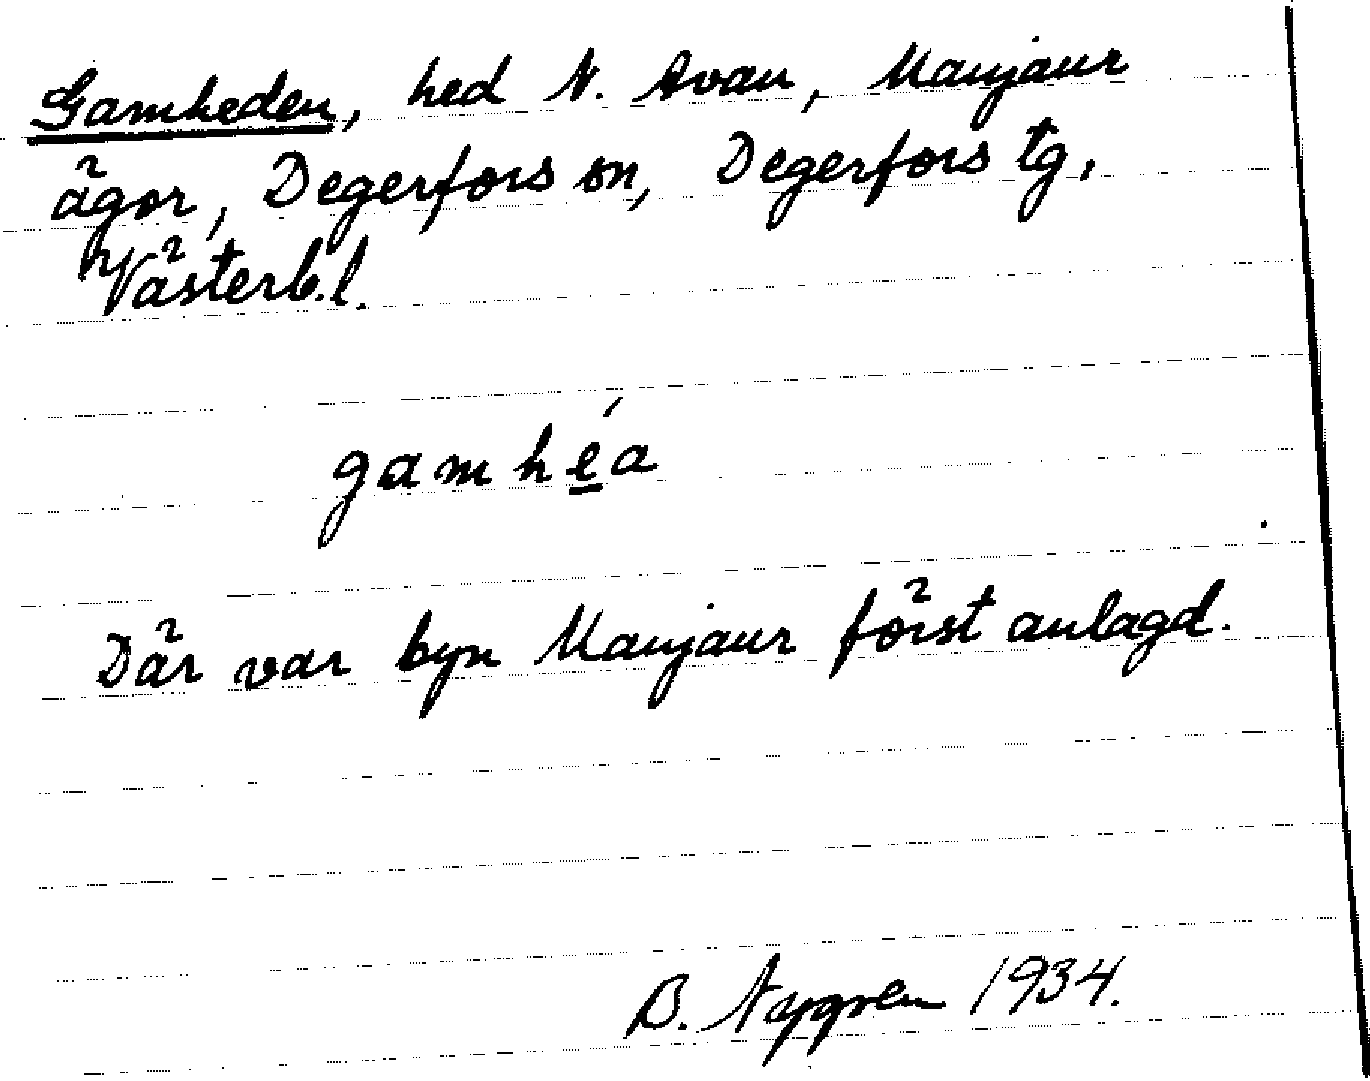 Gamheden, hed N. Avan, Manjaur
ägor, Degerfors sn, Degerfors tg,
Västerb.l.
gamhé̱a
Där var byn Manjaur först anlagd.
B. Nygren 1934.